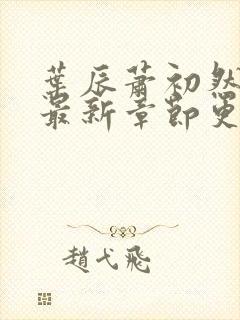 葉辰蕭初然
最新章節更
趙弋飛